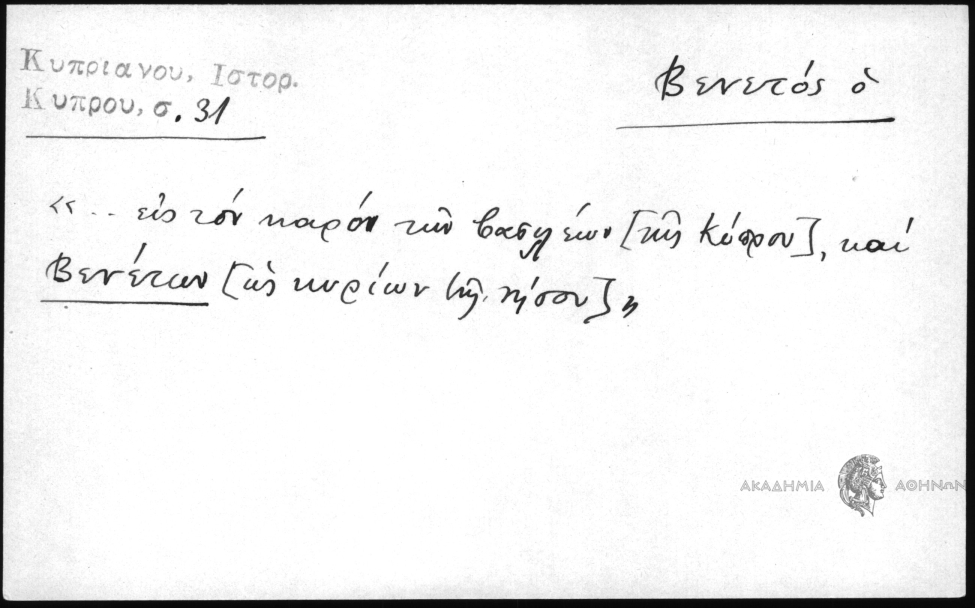 Κυπριανου, Ιστορ.
Κυπρου, σ. 31
Βενετός ὁ
«... εἰς τὸν καιρόν τῶν βασιλέων [τῆς Κύπρου], καὶ
Βενέτων [ὡς κυρίων τῆς νήσου]»
ΑΚΑΔΗΜΙΑ ΑΘΗΝΩΝ